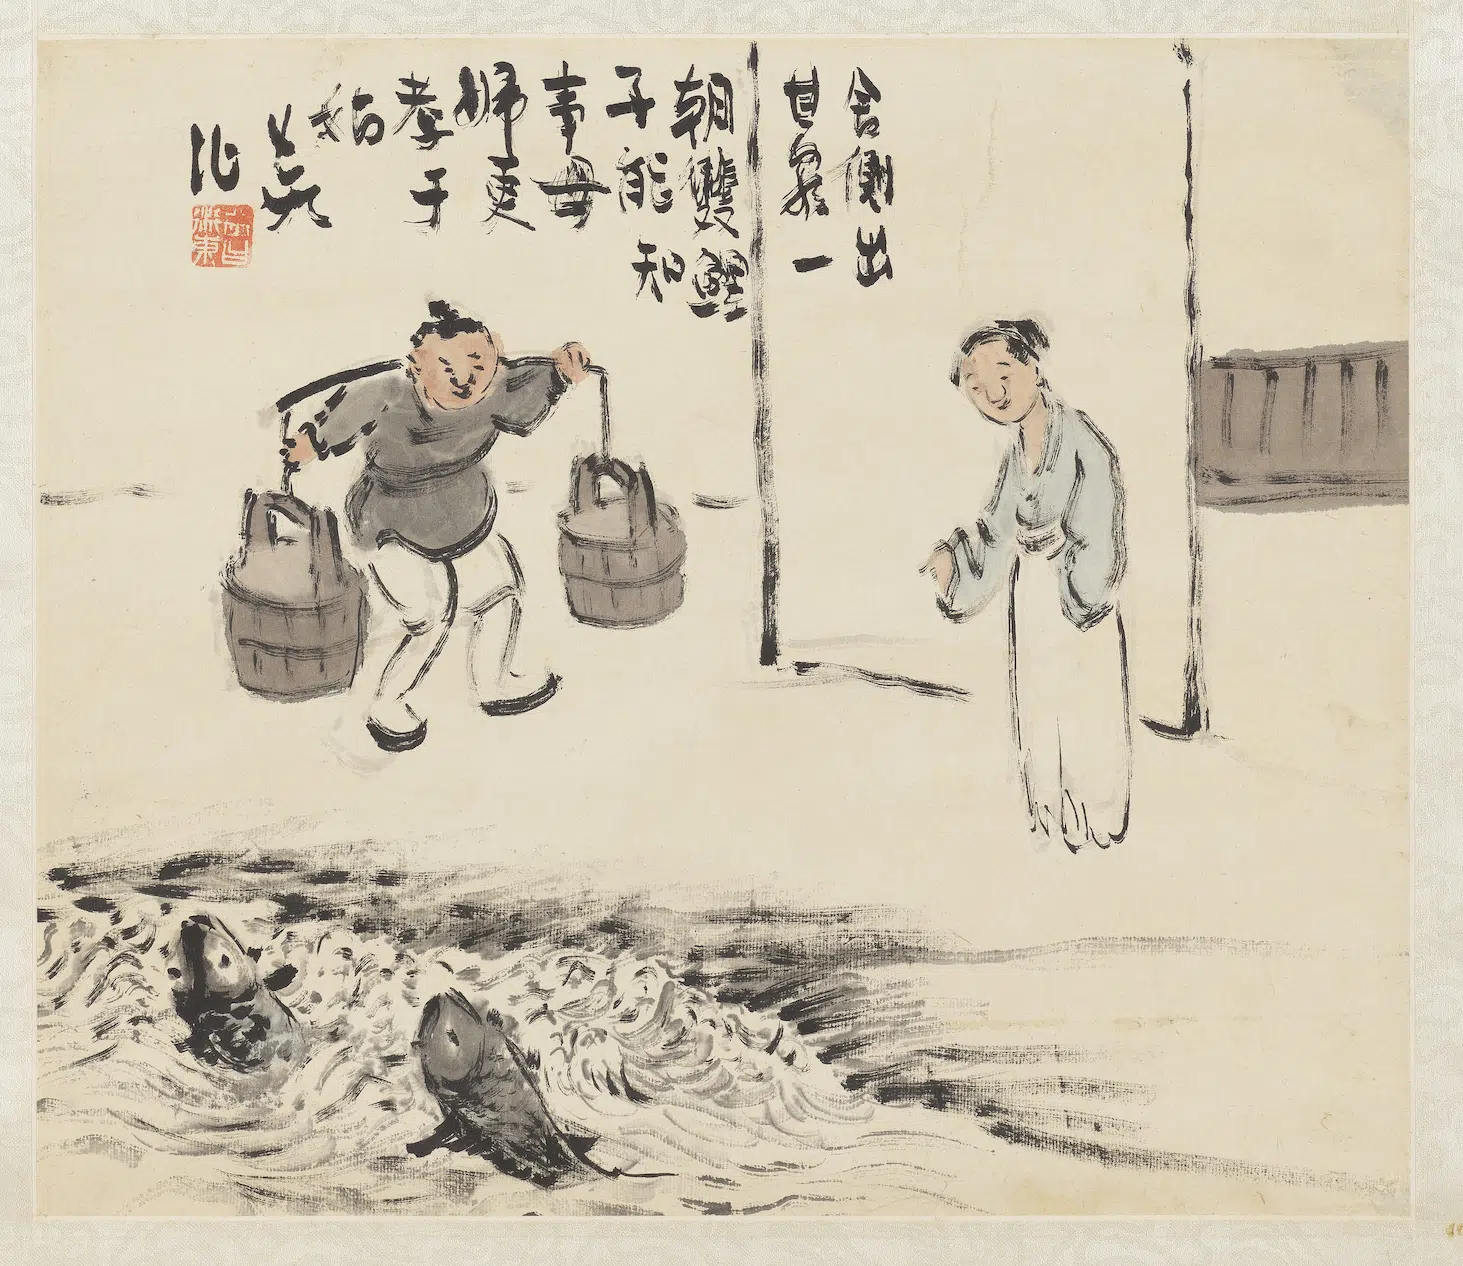 舍側出
甘泉一
朝雙鯉
子能知
事母
婦更
孝于
姑